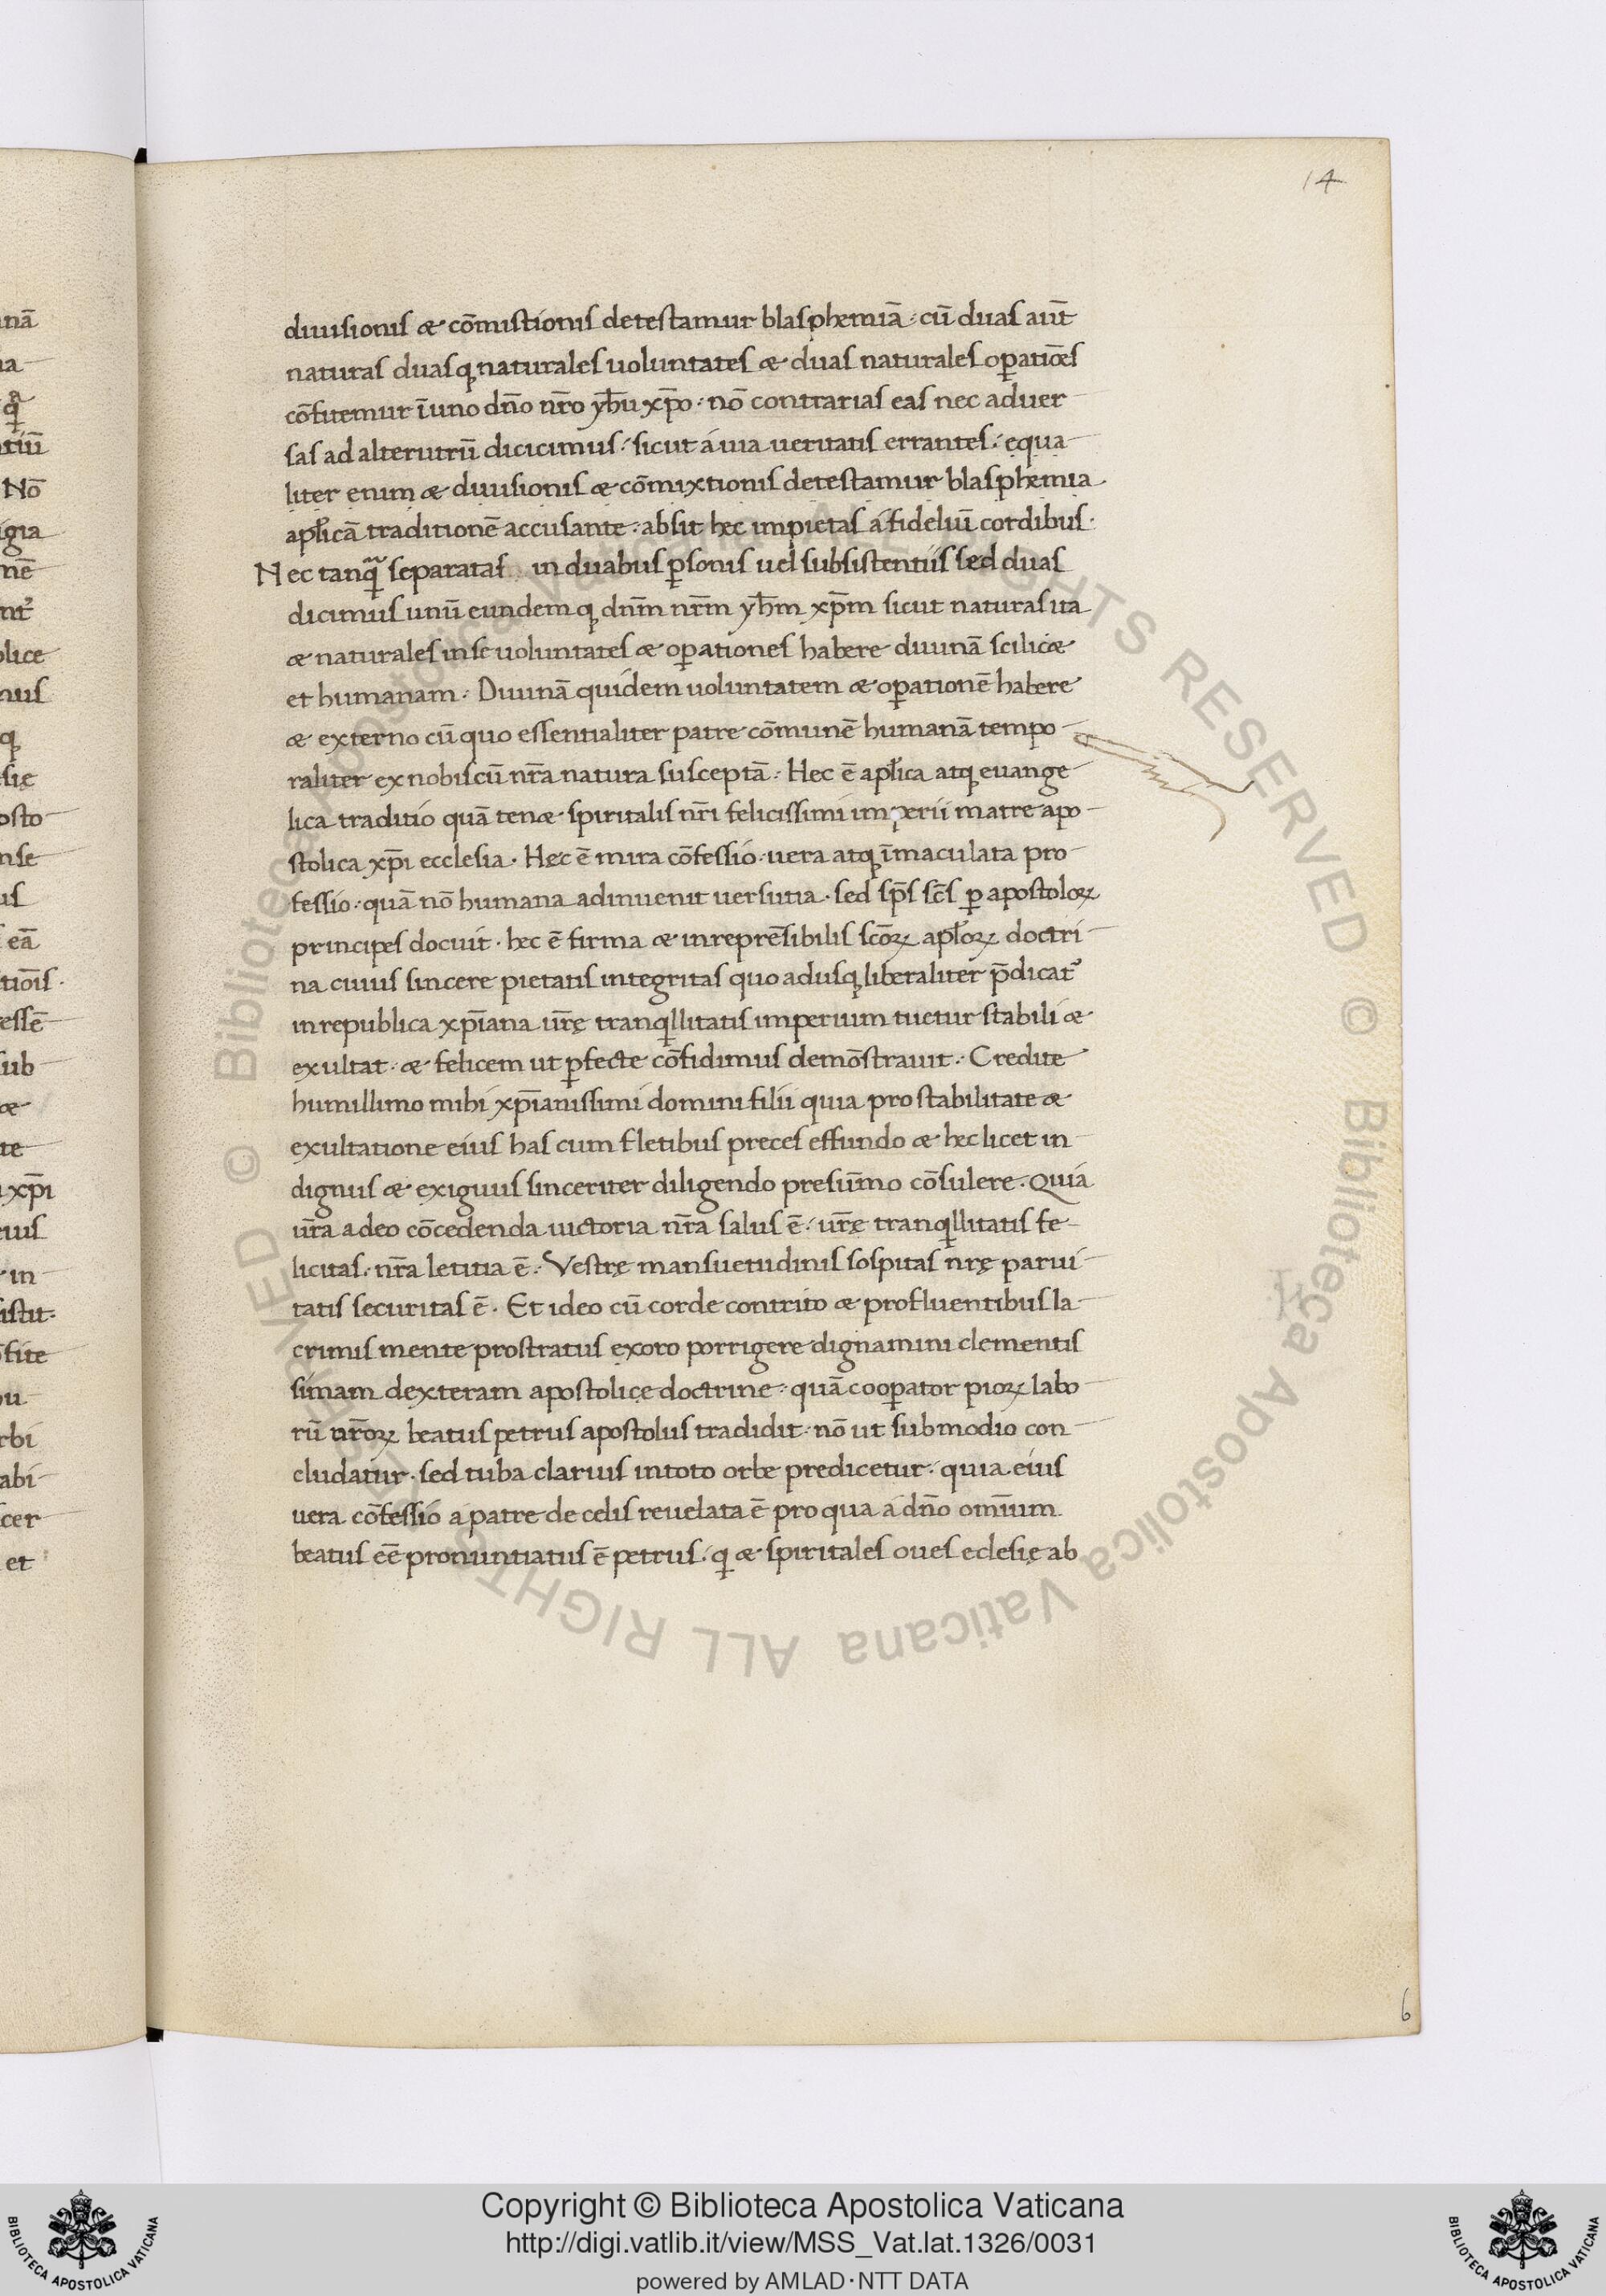 14
diuisionis æ cōmistionis detestamur blasphemiā · cū duas aut̄
naturas duasq; naturales uoluntates æ duas naturales oꝑatiōes
cōfitemur ī uno dn̄o nr̄o yh̄u xp̄o · nō contrarias eas nec aduer
sas ad alterutrū dicicimus · sicut á uia ueritatis errantes · equa
liter enim æ diuisionis æ cōmixtionis detestamur blasphemia
apl̄icā traditionē accusante · absit hec impietas á fideliū cordibus ·
Nec tanqᷓ separatas in duabus ꝑsonis uel subsistentiis sed duas
dicimus unū eundemq; dn̄m nr̄m yh̄m xp̄m sicut naturas ita
æ naturales in se uoluntates æ oꝑationes habere diuinā scilicæ
et humanam · Diuinā quidem uoluntatem æ oꝑationē habere
æ externo cū quo essentialiter patre cōmunē humanā tempo
raliter ex nobiscū nr̄a natura susceptā · Hec ē apl̄ica atq; euange
lica traditio quā tenæ spiritalis nr̄i felicissimi imperii matre apo
stolica xp̄i ecclesia · Hęc ē mira cōfessio · uera atq; īmaculata pro
fessio · quā nō humana adinuenit uersutia · sed sp̄s sc̄s ꝑ apostoloꝝ
principes docuit · hec ē firma æ inreprēsibilis sc̄oꝝ apl̄oꝝ doctri
na cuius sincere pietatis integritas quo adusq; liberaliter p̄dicat᷑
in republica xp̄iana ur̄ę tranqꝉlitatis imperium tuetur stabili æ
exultat · æ felicem ut ꝑfecte cōfidimus demōstrauit · Credite
humillimo mihi xp̄ianissimi domini filii quia pro stabilitate æ
exultatione eius has cum fletibus preces effundo æ hec licet in
dignus æ exiguus sinceriter diligendo presūmo cōsulere · Quia
ur̄a a deo cōcedenda uictoria nr̄a salus ē · ur̄ę tranqꝉlitatis fe
licitas · nr̄a letitia ē · Vestrę mansuetudinis sospitas nr̄ę parui
tatis securitas ē · Et ideo cū corde contrito æ profluentibus la
crimis mente prostratus exoro porrigere dignamini clementis
simam dexteram apostolicę doctrine · quā cooꝑator pioꝝ labo
rū ur̄oꝝ beatus petrus apostolus tradidit · nō ut sub modio con
cludatur · sed tuba clarius in toto orbe predicetur · quia eius
uera cōfessio a patre de celis reuelata ē pro qua á dn̄o omīum
beatus eē pronuntiatus ē petrus · q æ spiritales oues eclesię ab
6
nā
ia
qᷓ
tiū
Nō
igia
nē
nt᷑
olice
nus
q;
się
osto
nse
us
eā
tiōis ·
essē
sub
æ
te
xp̄i
eius
in
istit ·
ōfite
ou
rbi
abi
cer
et
© Biblioteca Apostolica Vaticana ALL RIGHTS RESERVED © Biblioteca Apostolica Vaticana ALL RIGHTS RESERVED
BIBLIOTECA APOSTOLICA VATICANA
Copyright © Biblioteca Apostolica Vaticana
http://digi.vatlib.it/view/MSS_Vat.lat.1326/0031
powered by AMLAD·NTT DATA
BIBLIOTECA APOSTOLICA VATICANA